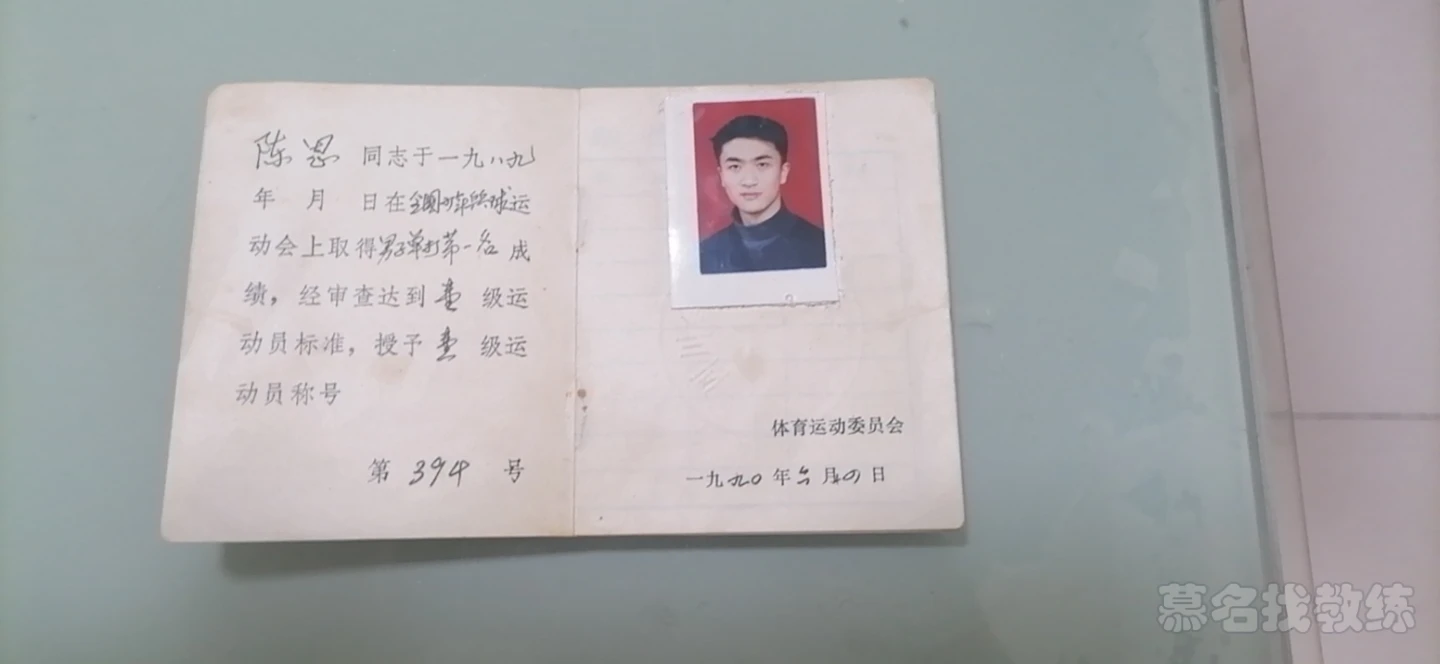 陈思 同志于一九八九
年 月 日在全国少年段球运
动会上取得男子单打第一名成
绩，经审查达到壹级运
动员标准，授予壹级运
动员称号
第 394 号
体育运动委员会
一九九〇年六月四日
慕名找教练